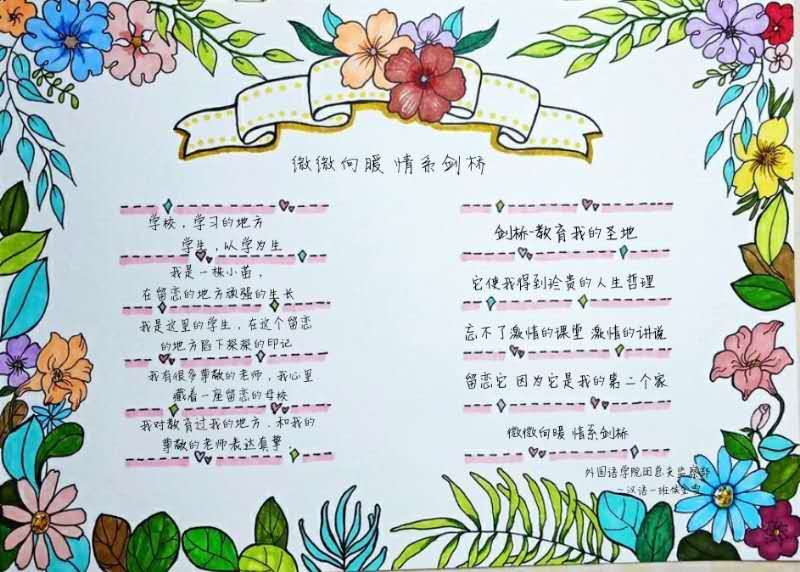 微微向暖 情系剑桥
学校，学习的地方
学生，以学为生
我是一株小苗，
在留恋的地方顽强的生长
我是这里的学生，在这个留恋
的地方留下深深的印记
我有很多尊敬的老师，我心里
藏着一座留恋的母校
我对教育过我的地方，和我的
尊敬的老师表达真挚．
剑桥-教育我的圣地
它使我得到珍贵的人生哲理
忘不了激情的课堂 激情的讲说
留恋它 因为它是我的第二个家
微微向暖 情系剑桥
外国语学院团总支
-汉语一班